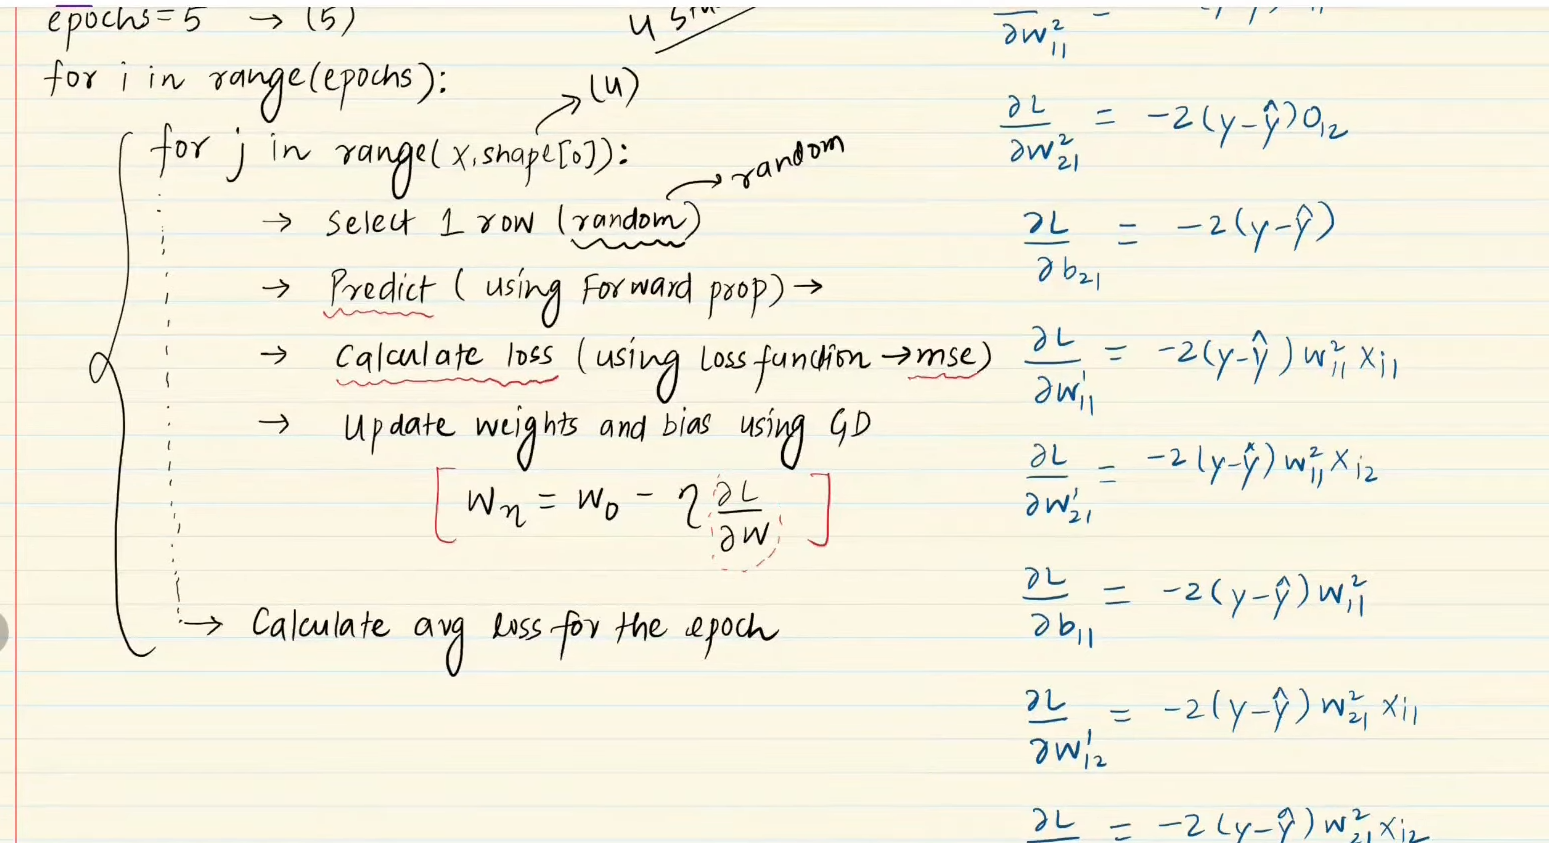 epochs = 5 → (5)
for i in range(epochs):
→ (4)
for j in range(X.shape[0]):
→ random
→ Select 1 row (random)
→ Predict (using Forward prop) →
→ Calculate loss (using loss function → mse)
→ Update weights and bias using GD
[Wn = W0 - η ∂L/∂W]
→ Calculate avg loss for the epoch
4
∂W²11
∂L/∂W²21 = -2(y-ŷ)O12
∂L/∂b21 = -2(y-ŷ)
∂L/∂W¹11 = -2(y-ŷ)W²11 Xi1
∂L/∂W¹21 = -2(y-ŷ)W²11 Xi2
∂L/∂b11 = -2(y-ŷ)W²11
∂L/∂W¹12 = -2(y-ŷ)W²21 Xi1
∂L = -2(y-ŷ)W²21 Xi2